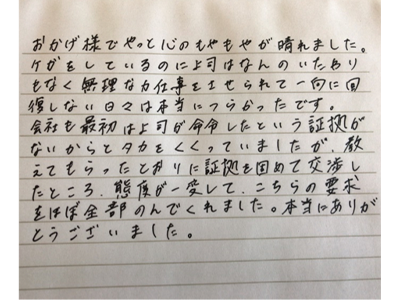 おかげ様でやっと心のもやもやが晴れました。
ケガをしているのに上司はなんのいたわり
もなく無理な力仕事をさせられて一向に回
復しない日々は本当につらかったです。
会社も最初は上司が命令したという証拠が
ないからとタカをくくっていましたが、教
えてもらったとおりに証拠を固めて交渉し
たところ、態度が一変して、こちらの要求
をほぼ全部のんでくれました。本当にありが
とうございました。